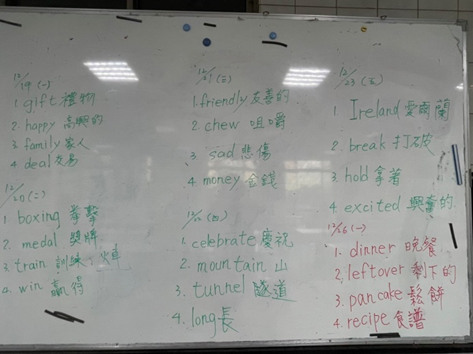 12/19 (一)
1. gift 禮物
2. happy 高興的
3. family 家人
4. deal 交易
12/20 (二)
1 boxing 拳擊
2. medal 獎牌
3 train 訓練;火車
4. win 贏得
12/21 (三)
1. friendly 友善的
2. chew 咀嚼
3 sad 悲傷
4. money 金錢
(四)
1. celebrate 慶祝
2. mountain 山
3. tunnel 隧道
4. long 長
12/23 (五)
1. Ireland 愛爾蘭
2. break 打破
3. hold 拿著
4. excited 興奮的
(一)
1. dinner 晚餐
2. leftover 剩下的
3. pancake 鬆餅
4. recipe 食譜